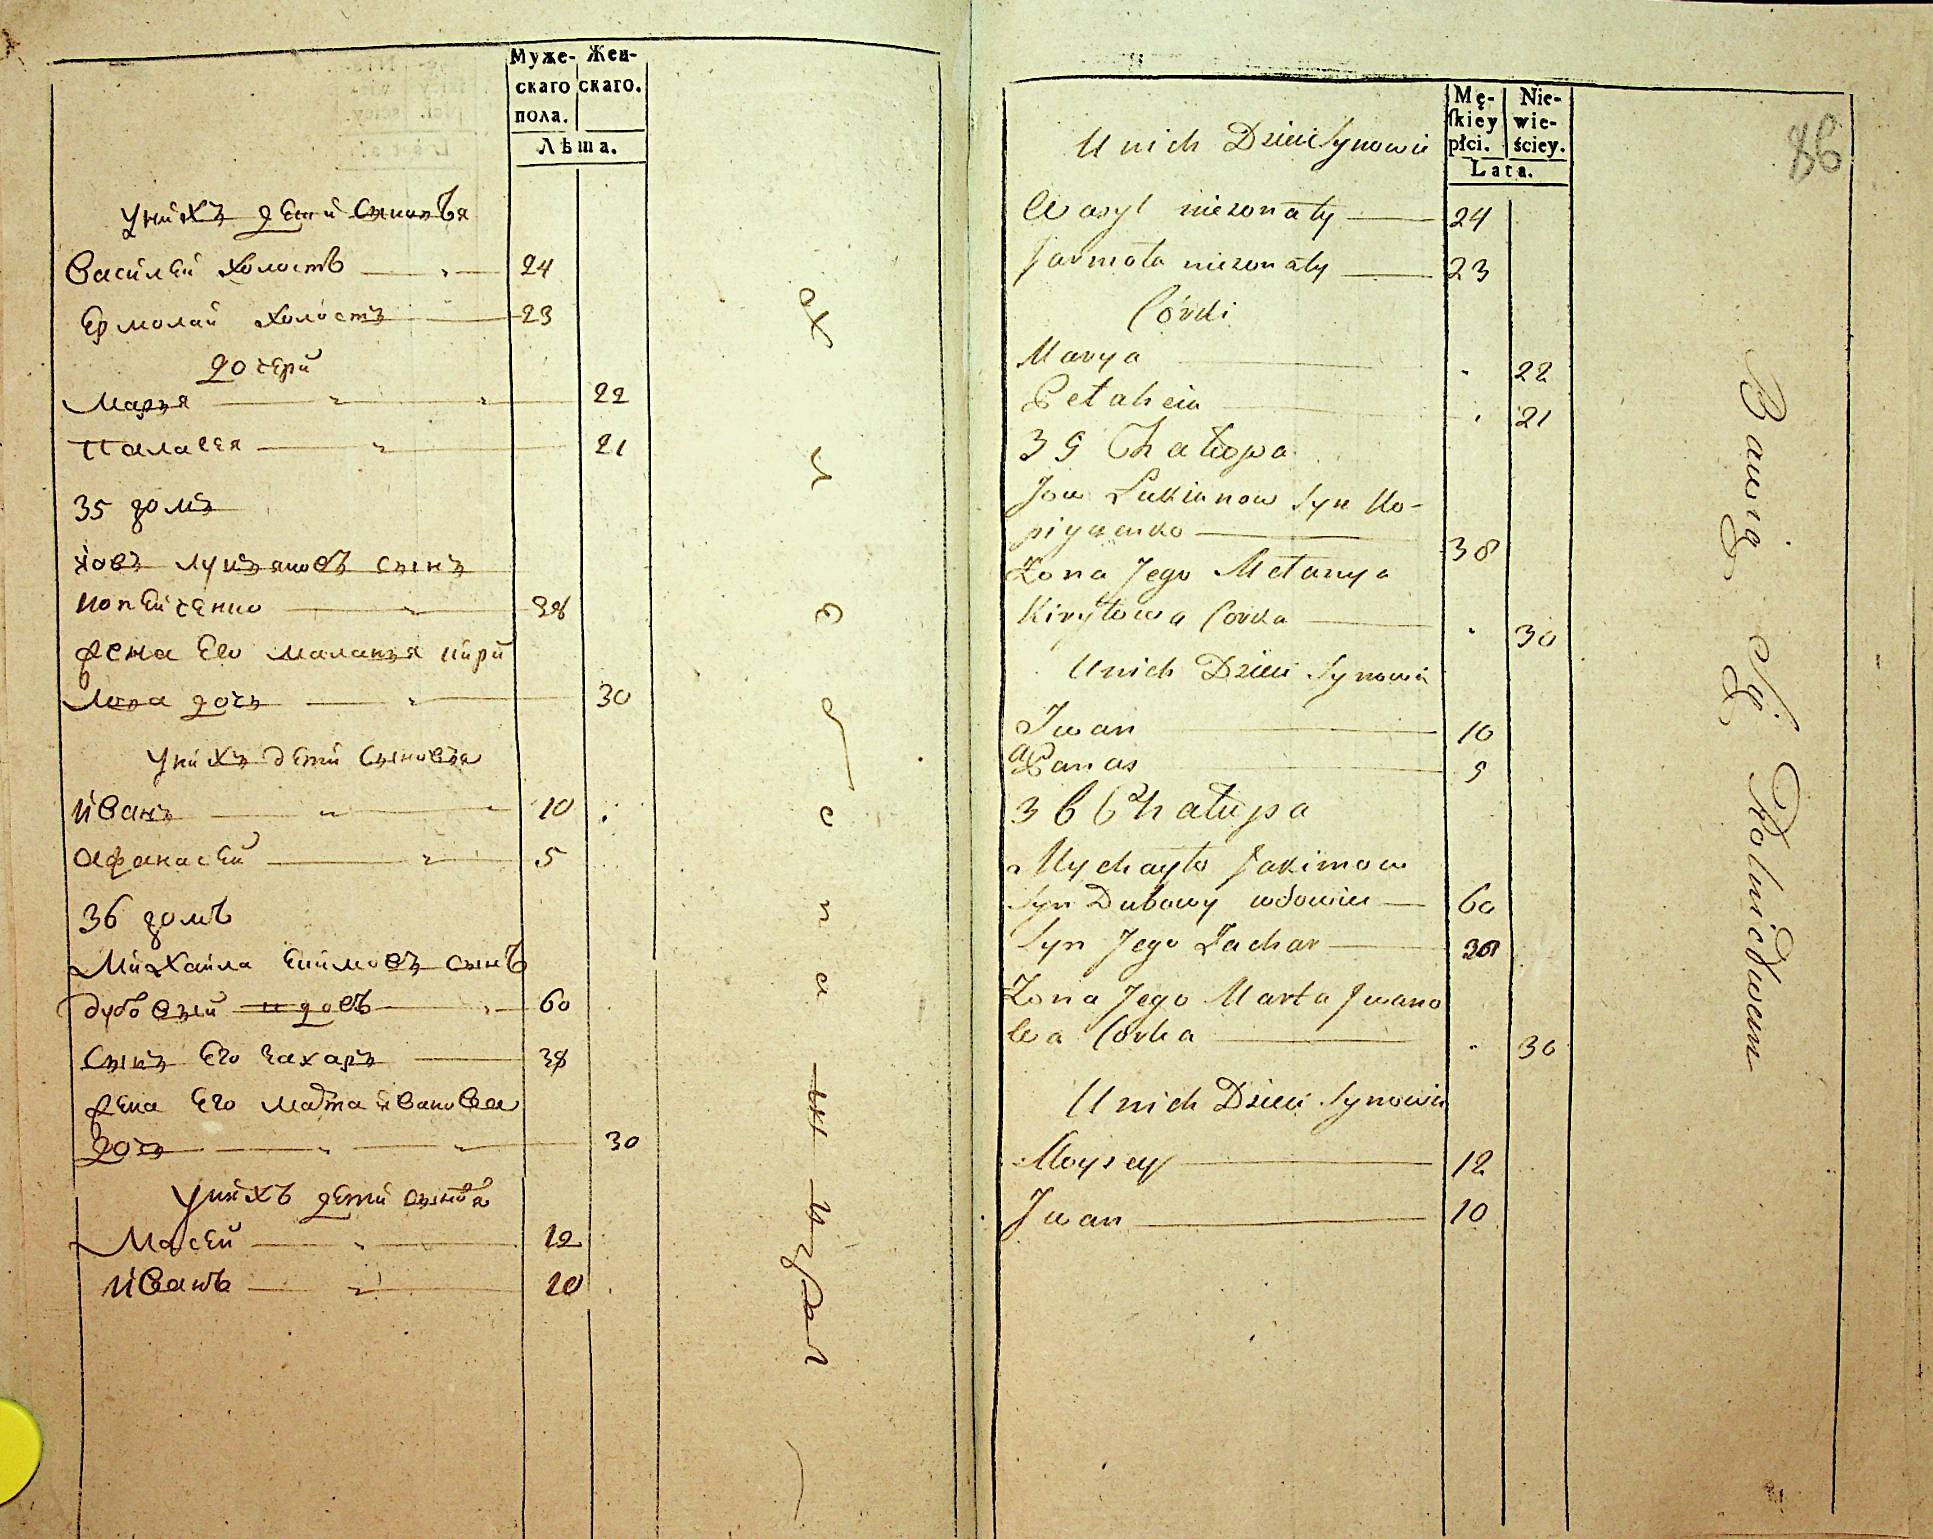 Муже-
скаго
пола.
Жен-
скаго.
Лѣта.
Унихъ дети сыновья
Василей холостъ 24
Ермолай холостъ 23
дочери
Марья 22
Палагея 21
35 домъ
Иовъ Лукьяновъ сынъ
Копейченко 38
Жена Его Маланья Кири
лова дочь 30
Унихъ дети сыновья
Иванъ 10
Афанасей 5
36 домъ
Михайла Екимовъ сынъ
Дубовый вдовъ 60
Сынъ Его Захаръ 38
Жена Его Марта Иванова
дочь 30
Унихъ дети сыновья
Мосей 12
Иванъ 10
хлебопа
Mę-
skiey
płci.
Nie-
wie-
ściey.
Lata.
86
U nich Dzieci Synowie
Wasyl niezonaty 24
Jarmoła niezonaty 23
Córki
Marya 22
Pełaheia 21
35 Chałupa
Jow Łukianow Syn Ko-
piyczenko 38
Żona Jego Mełanya
Kiryłowa Corka 30
U nich Dzieci Synowie
Iwan 10
aPanas 5
36 Chałupa
Mychayło Jakimow
Syn Dubowy wdowiec 60
Syn Jego Zachar 38
Żona Jego Marta Iwano
wa Corka 30
U nich Dzieci Synowie
Moysey 12
Iwan 10
Bawią Się Rolnictwem